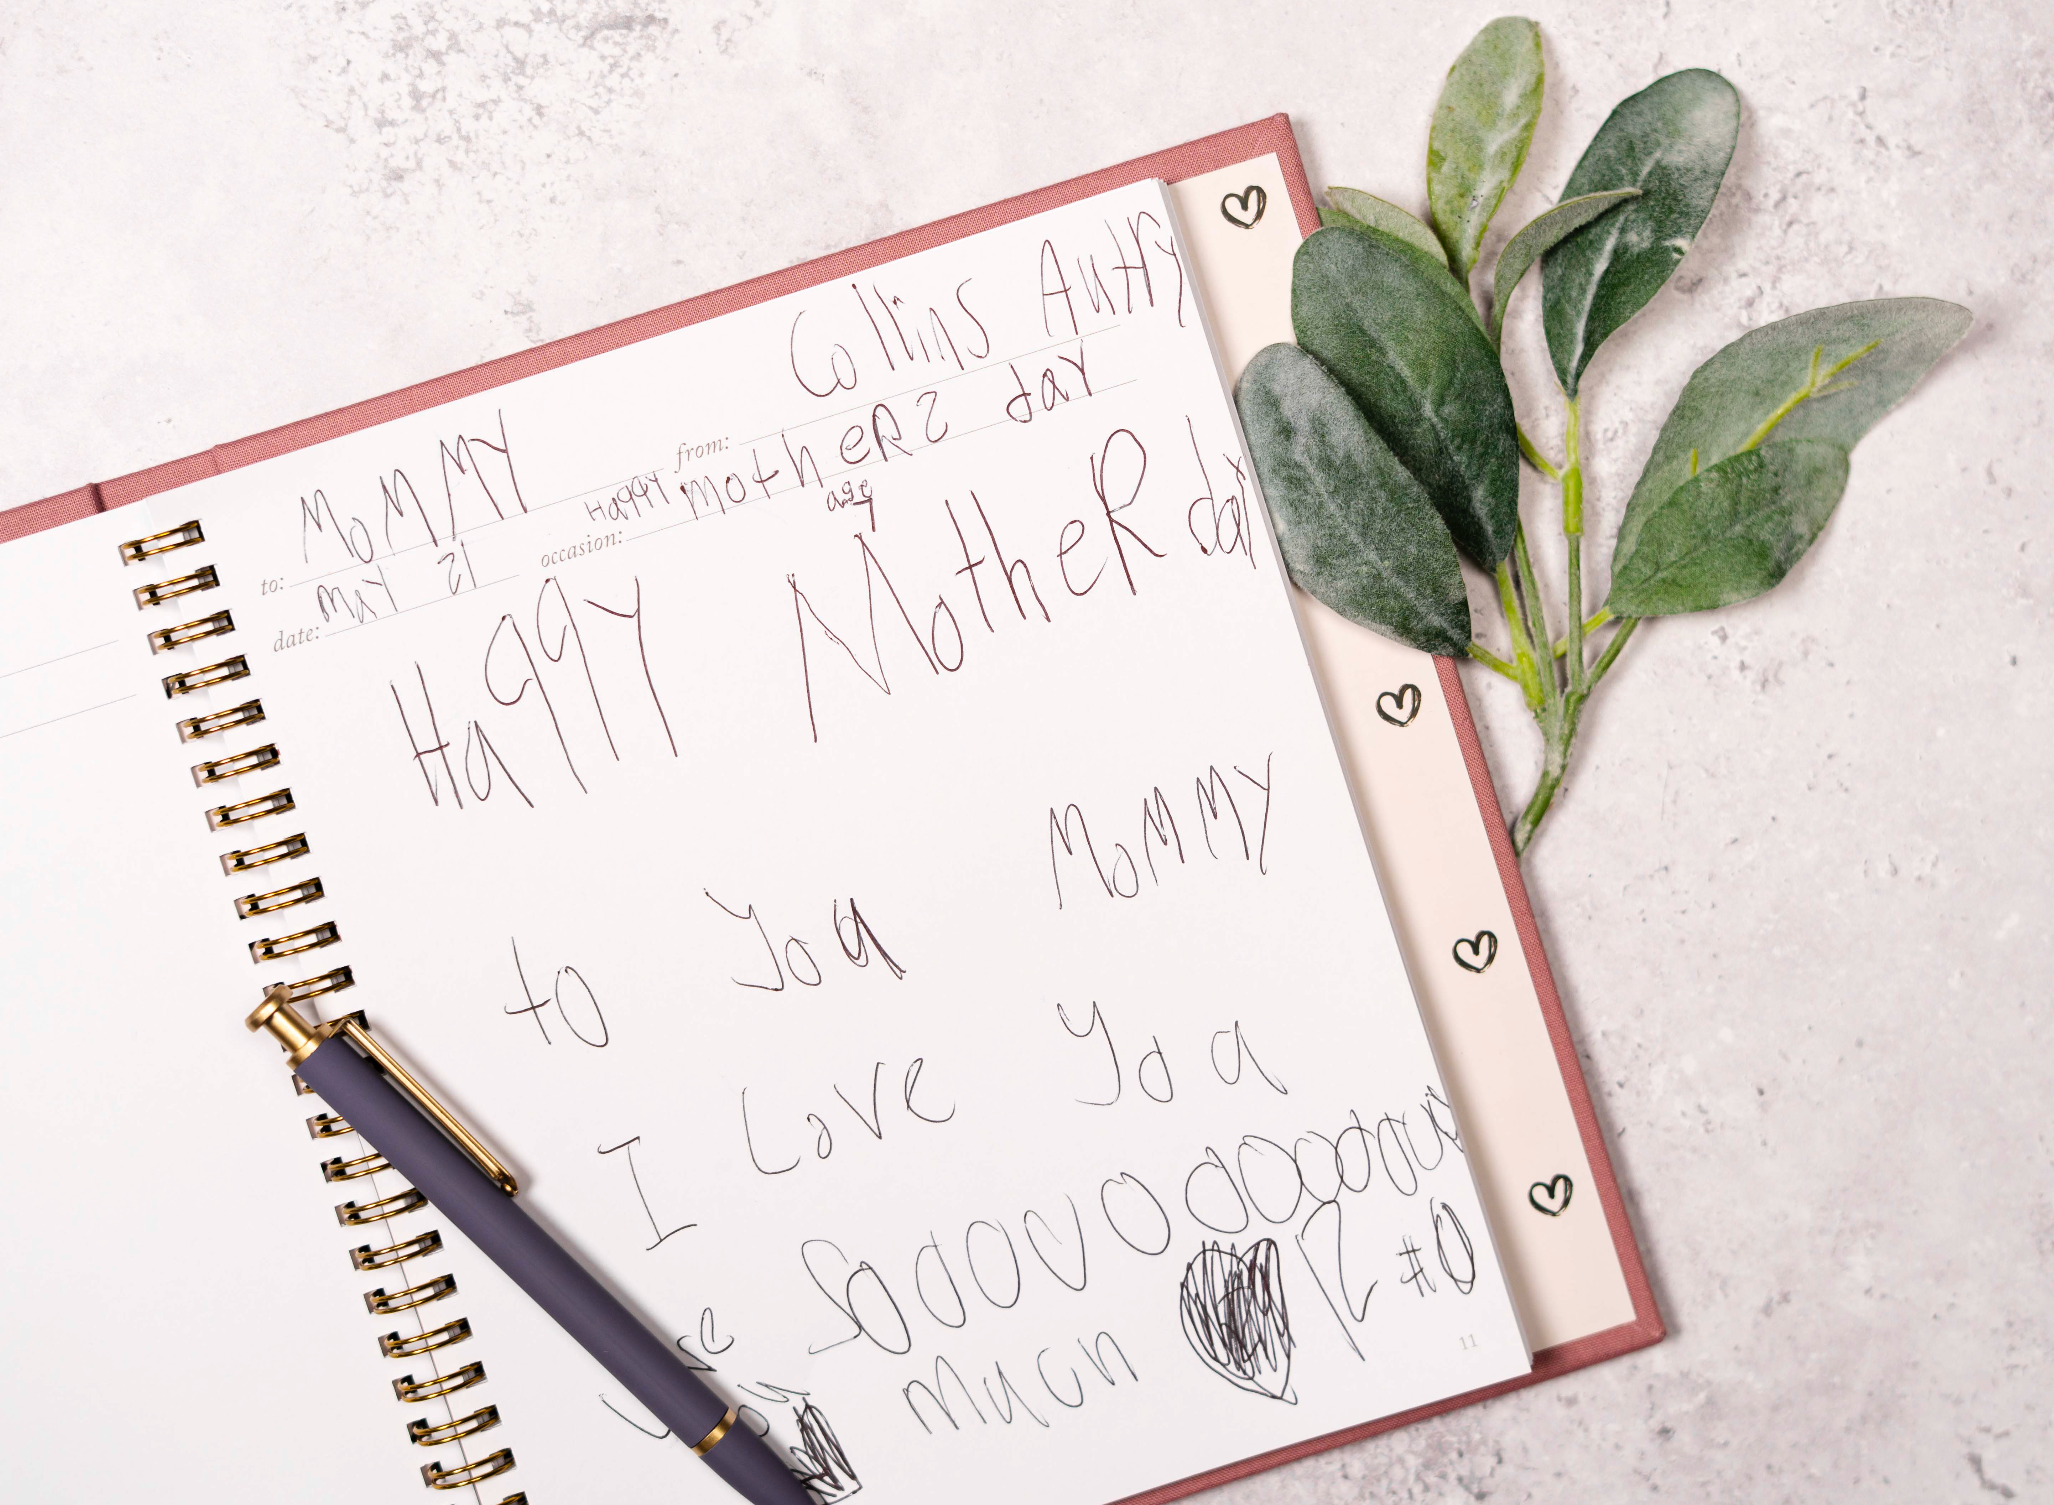 to: MoMMY from: Collins Autry
date: May 21 occasion: Happy motheRs day
age 7
Happy MotheR day
to you MoMMY
I Love You
Soooooooooooooo
much
11